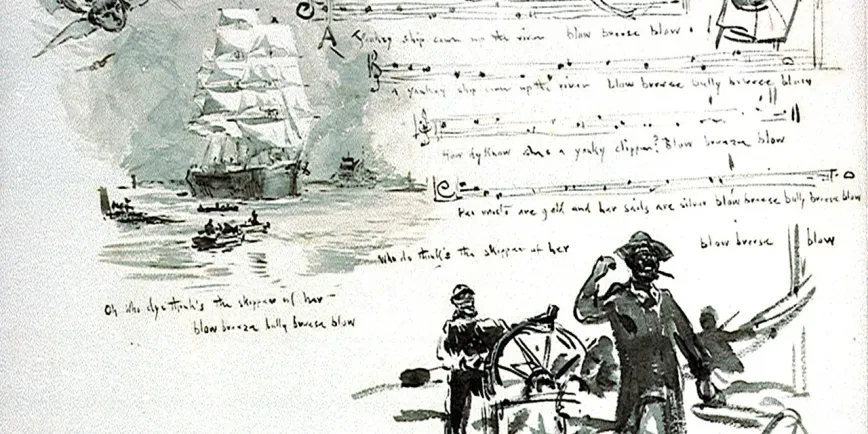 A Yankey ship com up the river blow breeze blow
a yankey ship com up the river blow breese bully breese blow
How dy Know shes a yanky clipper? Blow breeze blow
Her masts are gold and her sails are silver blow breese bully breese blow
Who do think's the skipper of her blow breese blow
Oh who dye think's the skipper of her
blow breeze bully breese blow